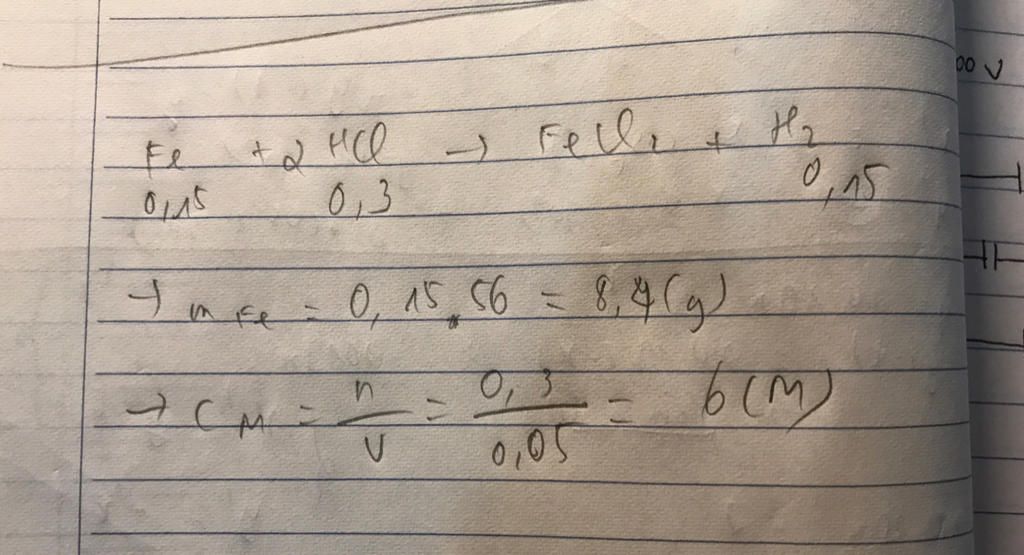 00 V
Fe + 2 HCl → FeCl2 + H2
0,15 0,3 0,15
→ mFe = 0,15.56 = 8,4 (g)
→ CM = n/V = 0,3/0,05 = 6 (M)